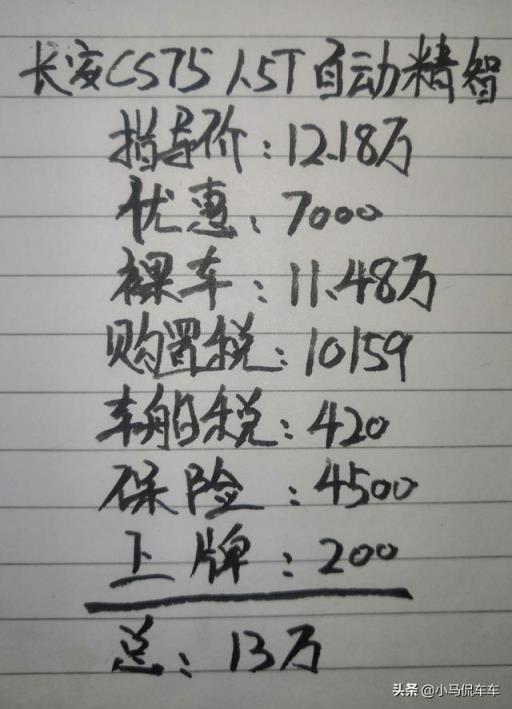 长安CS75 1.5T自动精智
指导价:12.18万
优惠:7000
裸车:11.48万
购置税:10159
车船税:420
保险:4500
上牌:200
总:13万
头条 @小马侃车车